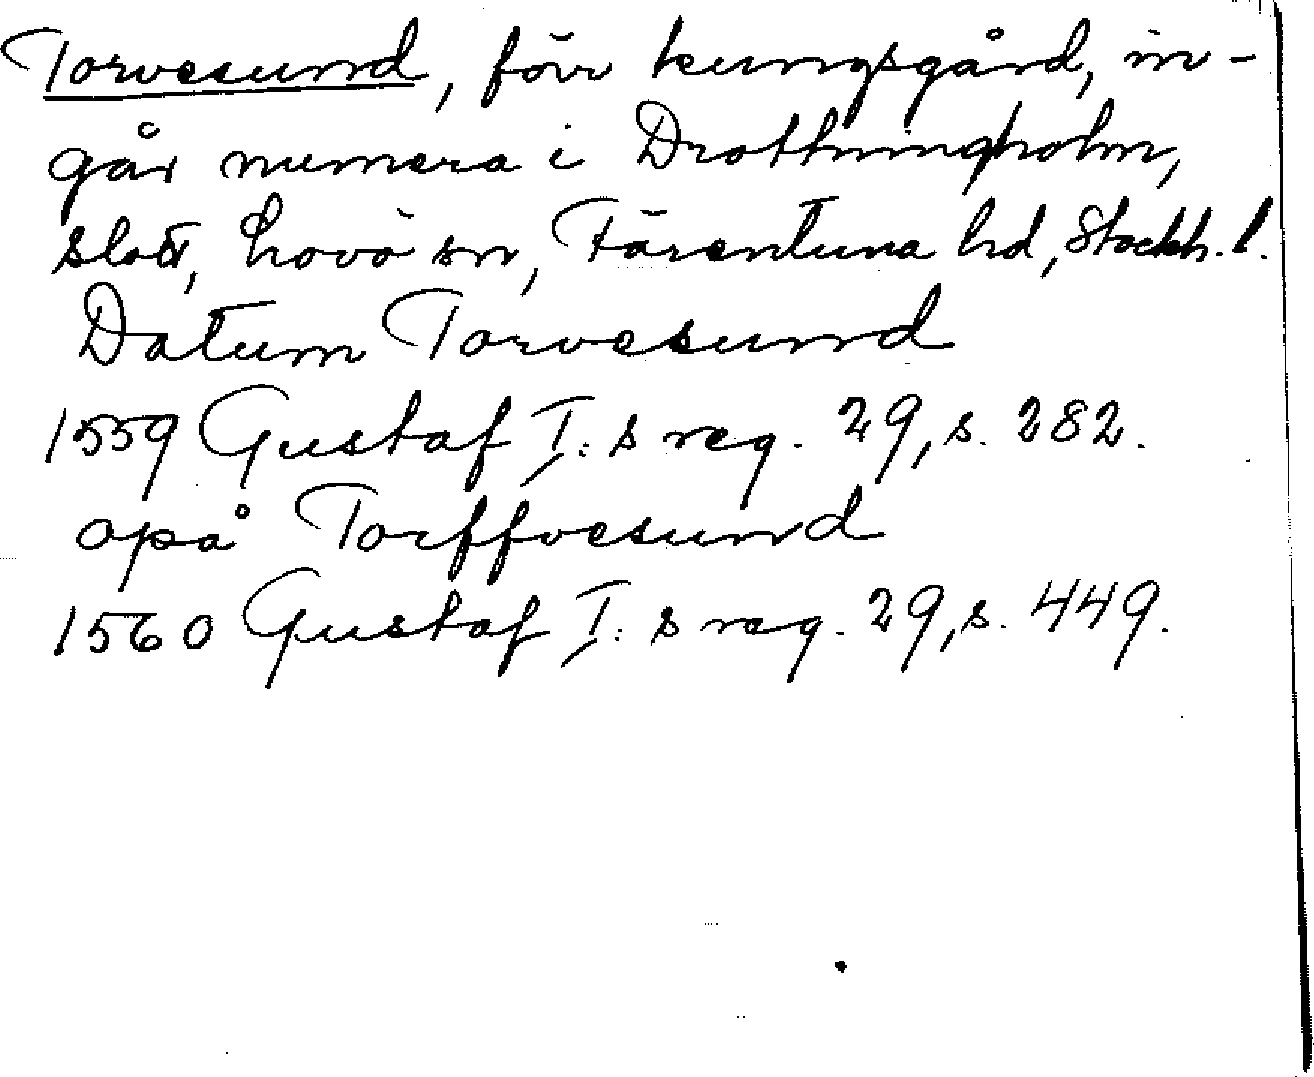 Torvesund, förr kungsgård, in-
går numera i Drottningholm,
slott, Lovö sn, Färentuna hd, Stockh. l.
Datum Torvesund
1559 Gustaf I:s reg. 29, s. 282.
opå Torffvesund
1560 Gustaf I:s reg. 29, s. 449.